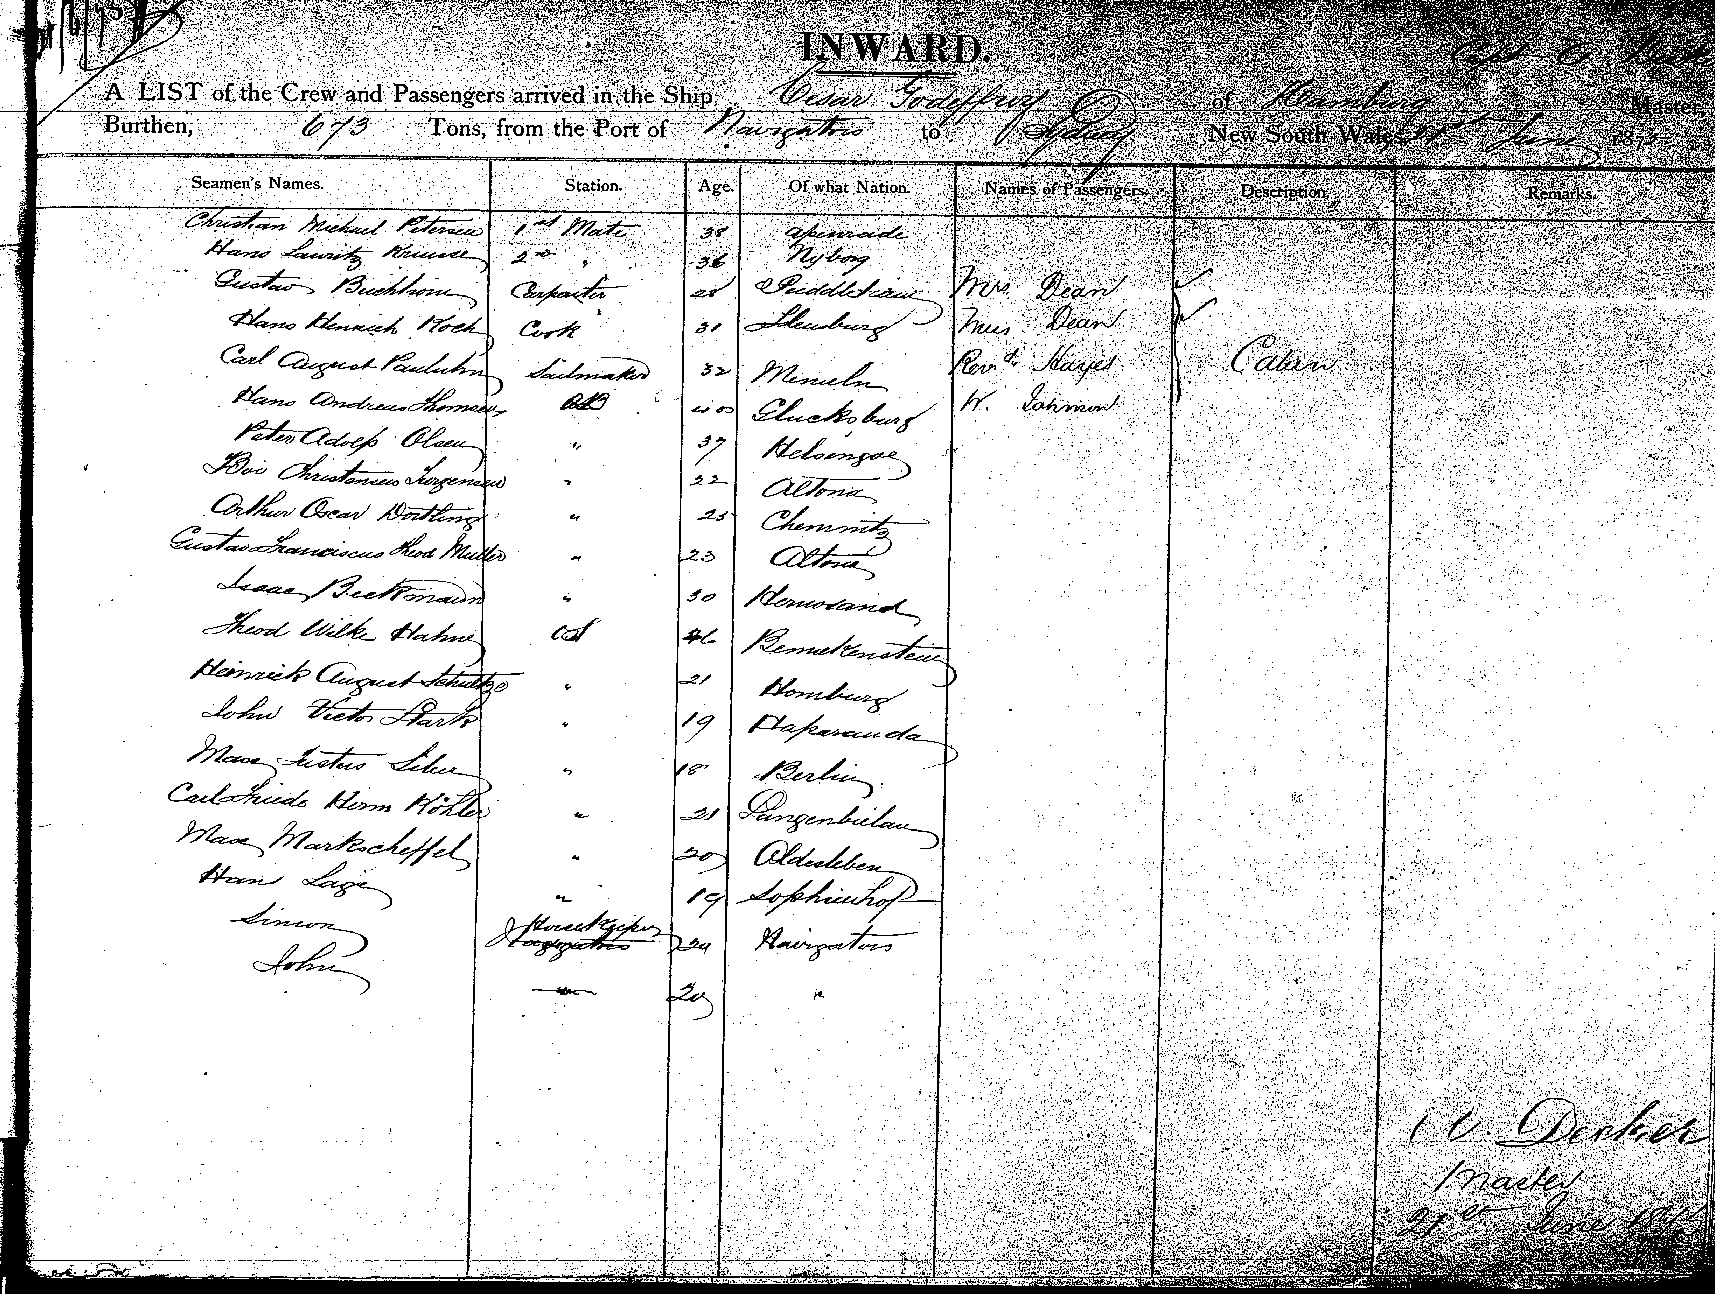 INWARD.
A LIST of the Crew and Passengers arrived in the Ship Cesar Godeffroy of Hamburg Master
Burthen, 673 Tons, from the Port of Navigators to Sydney New South Wales
Seamen's Names. Station. Age. Of what Nation. Names of Passengers. Description. Remarks.
Christian Michael Petersen 1st Mate 38 Apenrade
Hans Lauritz Kruuse 2nd " 36 Nyborg
Gustav Carpenter 28 Mrs Dean
Hans Hennich Koch Cook 31 Miss Dean
Carl August Pauluhn Sailmaker 32 Revd Hayes Cabin
Hans Andreas Thomsen AB 40 Glucksburg W. Johnson
Peter Adolf Olsen " 37 Helsingoe
Boi Christensen Jurgensen " 22 Altona
Arthur Oscar " 25 Chemnitz
Gustav Franciscus Theod Muller " 23 Altona
Isaac Beckmann " 30 Hernosand
Theod Wilke Hahne OS Benneckenstein
Heinrich August Schultze " 21 Homburg
John Victor Stark " 19 Haparanda
Max " 18 Berlin
Carl Friede Herm Köhler " 21 Langenbielau
Max Markscheffel " 20 Aldesleben
Hans " 19 Sophienhof
Simon 24 Navigators
John " 20 "
Decker
Master
21st June